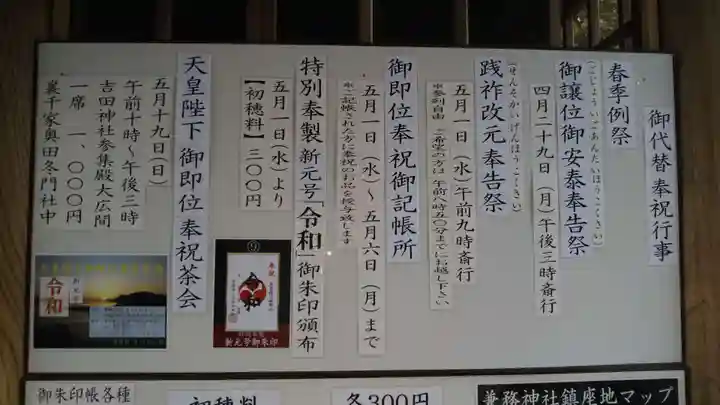 御代替奉祝行事
春季例祭
(ごじょういごあんたいほうこくさい)
御譲位御安泰奉告祭
四月二十九日(月)午後三時斎行
(せんそかいげんほうこくさい)
践祚改元奉告祭
五月一日(水)午前九時斎行
※参列自由 ご希望の方は午前八時五〇分までにお越し下さい
御即位奉祝御記帳所
五月一日(水)～五月六日(月)まで
※ご記帳された方に奉祝のお品を授与致します
特別奉製新元号「令和」御朱印頒布
五月一日(水)より
【初穂料】三〇〇円
⑨
奉祝
令和
新元号御朱印
天皇陛下御即位奉祝茶会
五月十九日(日)
午前十時～午後三時
吉田神社参集殿大広間
一席 一、〇〇〇円
裏千家奥田冬門社中
令和
御朱印帳各種
初穂料
各300円
兼務神社鎮座地マップ